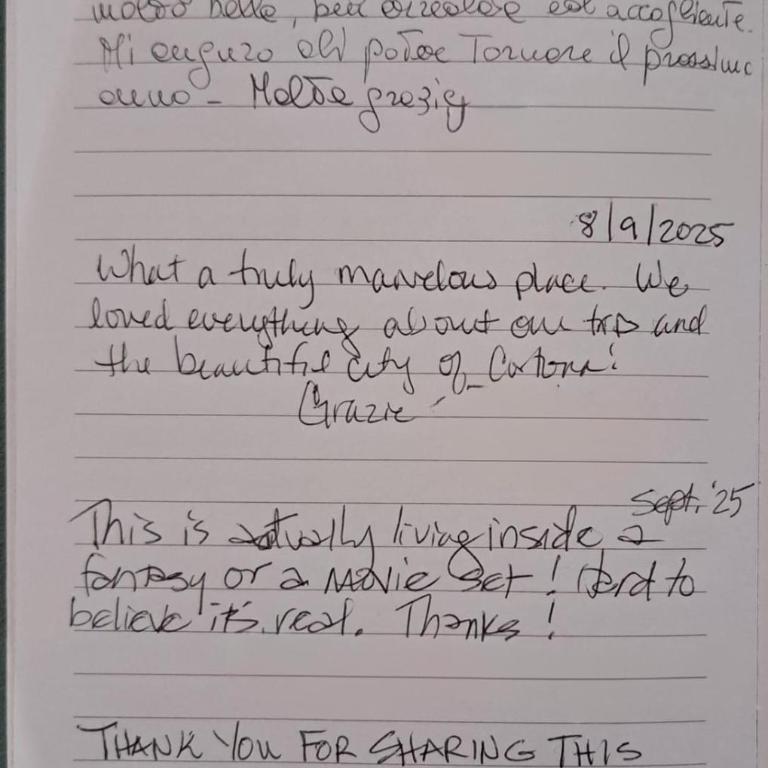 molto belle, ben arredate ed accogliente.
Mi auguro di poter Tornare il prossimo
anno - Molte grazie
8/9/2025
What a truly marvelous place. We
loved everything about our trip and
the beautiful city of Cortona!
Grazie
Sept. '25
This is actually living inside a
fantasy or a movie set! Hard to
believe it's real. Thanks!
THANK YOU FOR SHARING THIS